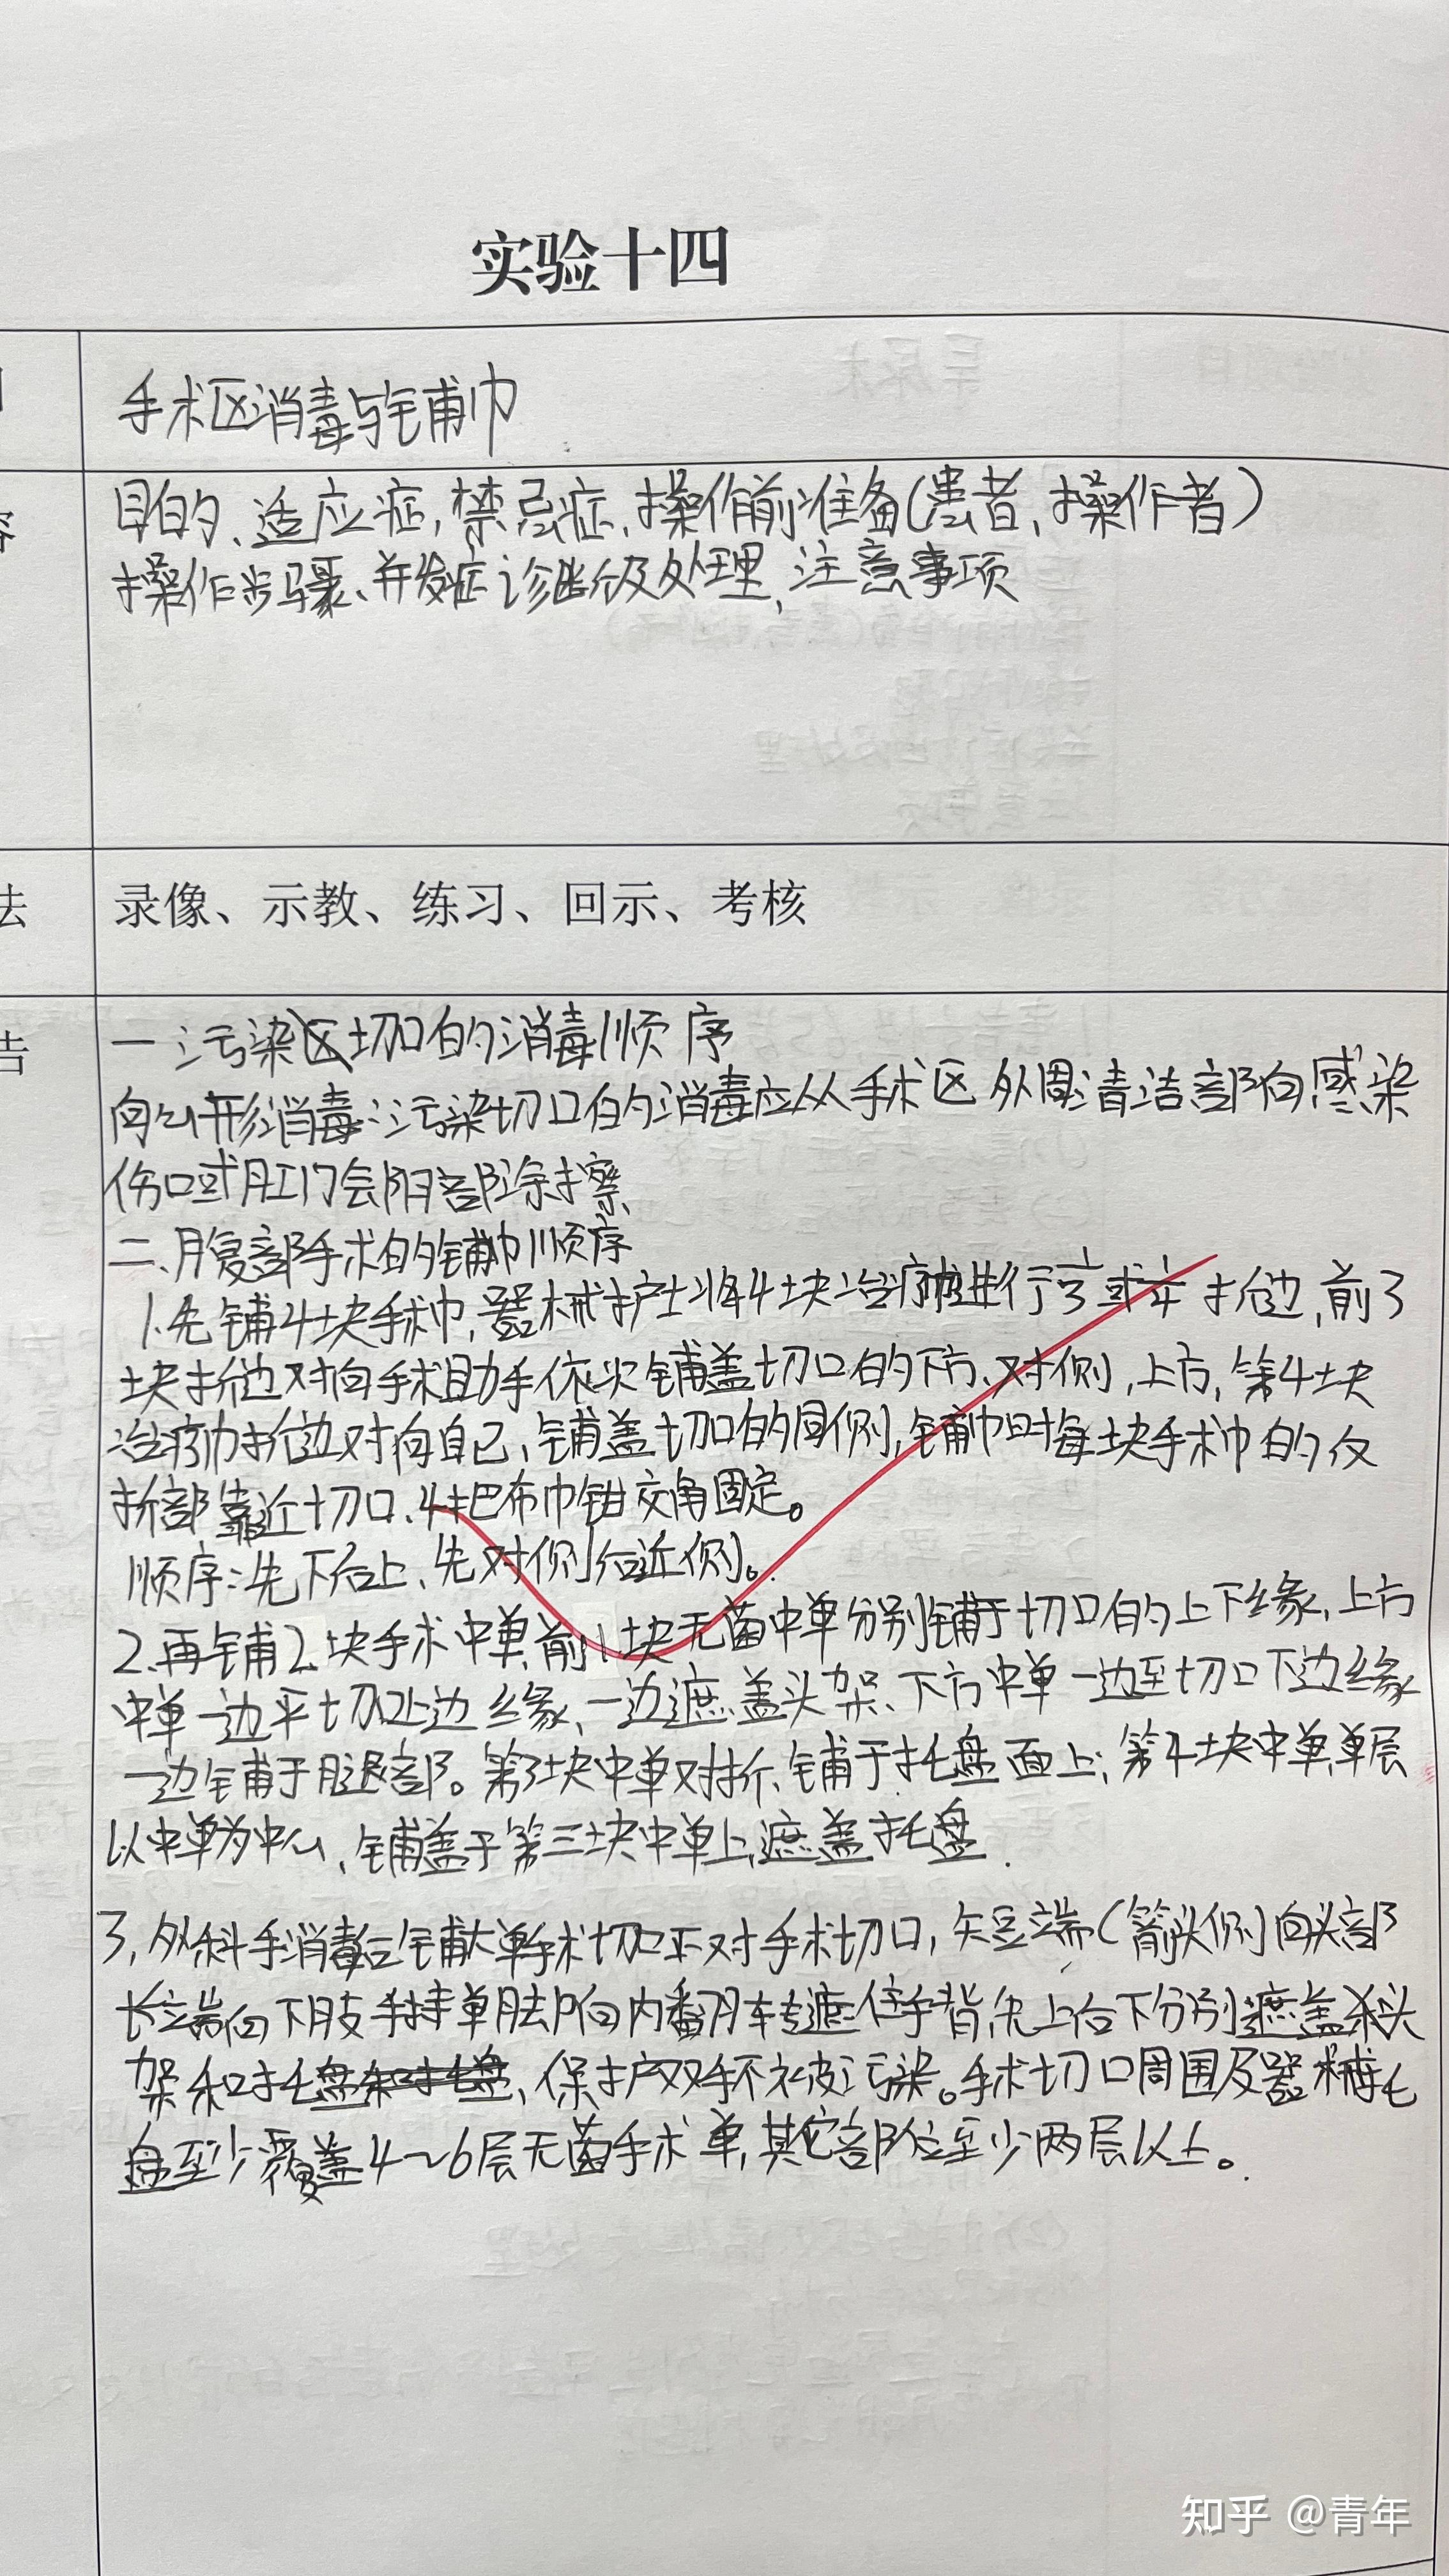 实验十四
手术区消毒与铺巾
容
目的、适应症，禁忌症、操作前准备（患者、操作者）
操作步骤、并发症诊断及处理，注意事项
法
录像、示教、练习、回示、考核
告
一 污染区切口的消毒顺序
向心形消毒：污染切口的消毒应从手术区外周清洁部向感染
伤口或肛门会阴部涂擦
二、腹部手术的铺巾顺序
1.先铺4块手术巾，器械护士将4块治疗巾进行1/3或1/4折边，前3
块折边对向手术助手依次铺盖切口的下方、对侧，上方，第4块
治疗巾折边对向自己，铺盖切口的同侧，铺巾时每块手术巾的反
折部靠近切口．4把布巾钳交角固定。
顺序：先下后上、先对侧后近侧。
2.再铺2块手术中单，前 块无菌中单分别铺于切口的上下缘，上方
中单一边平切口上边缘、一边遮盖头架、下方中单一边至切口下边缘
一边铺于腿部。第3块中单对折、铺于托盘面上；第4块中单单层
以中单为中心、铺盖于第三块中单上遮盖托盘．
3，外科手消毒后铺大单手术切口正对手术切口，短端（箭头侧）向头部
长端向下肢手持单 向内翻转遮住手背，先上后下分别遮盖 头
架和托盘，保护双手不被污染。手术切口周围及器械托
盘至少覆盖4～6层无菌手术单，其它部位至少两层以上。
知乎 @青年